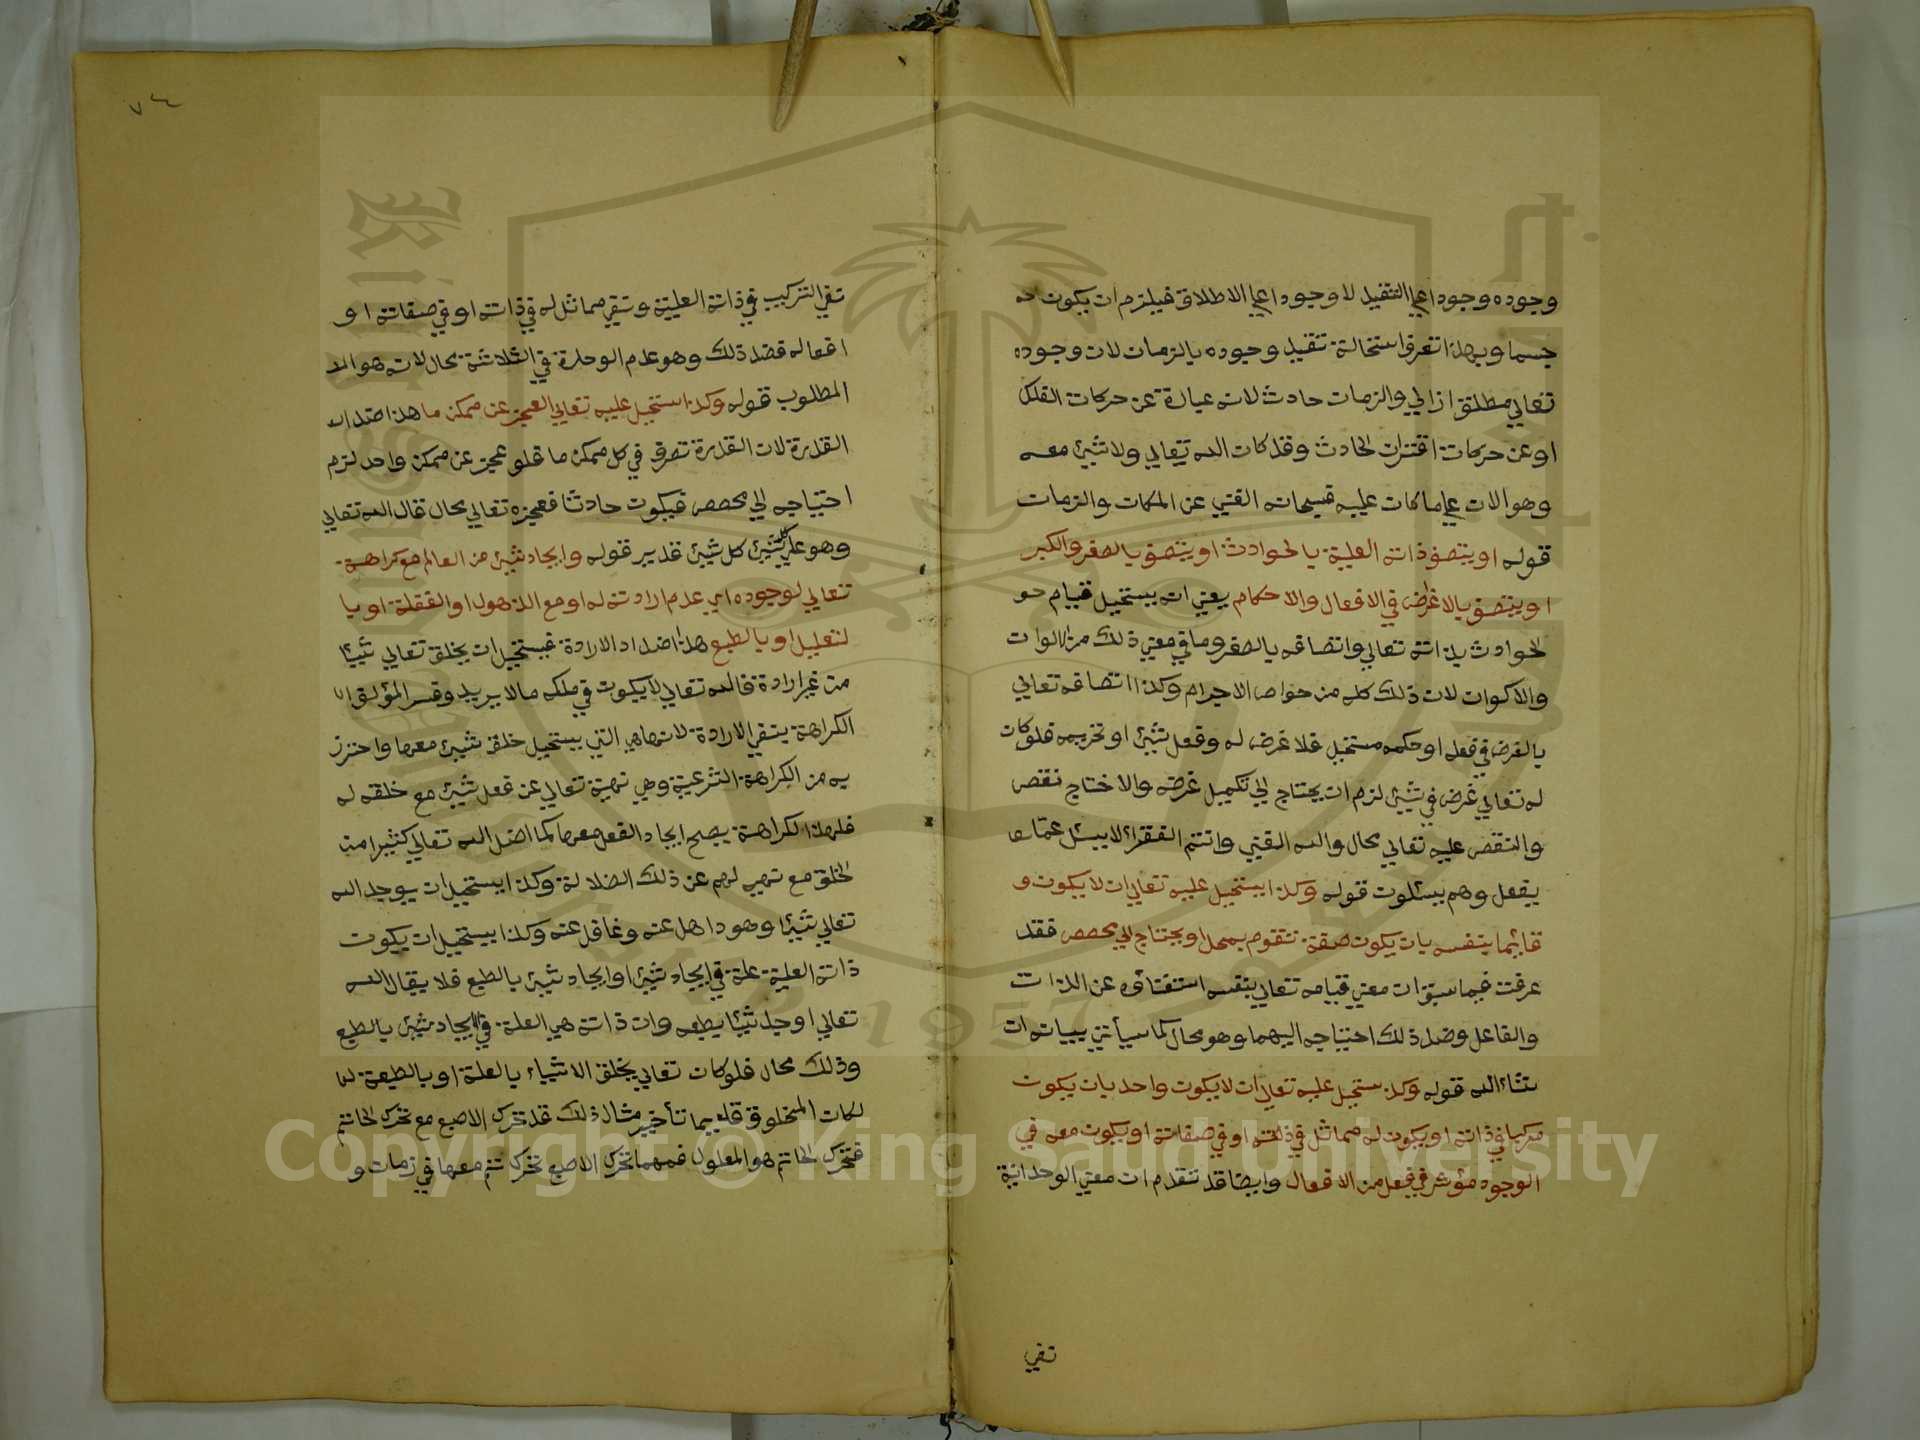 وجوده وجودا علي التقيد لا وجودا علي الاطلاق فيلزم ان يكون
جسما وبهذا تعرف استحالة تقيد وجوده بالزمان لان وجوده
تعالي مطلق ازالي والزمان حادث لانه عبارة عن حركات الفلك
او عن حركات اقتران الحادث وقد كان الله تعالي ولا شيئ معه
وهو الان علي ما كان عليه فسبحانه الغني عن المكان والزمان
قوله او يتصف ذاته العلية بالحوادث او يتصف بالصغر والكبر
او يتصف بالاغراض في الافعال والاحكام يعني انه يستحيل قيام حو
لحوادث بذاته تعالي واتصافه بالصغر وما في معني ذلك من الالوان
والاكوان لان ذلك كله من خواص الاجرام وكذا اتصافه تعالي
بالغرض في فعل او حكمه مستحيل فلا غرض له وفعل شيئ او تحريمه فلو كان
له تعالي غرض في شيئ لزم ان يحتاج الي تكميل غرضه والاحتاج نقص
والنقص عليه تعالي محال والله الغني وانتم الفقراء لا يسئل عما
يفعل وهم يسئلون قوله وكذا يستحيل عليه تعالي ان لا يكون و
قائما بنفسه بان يكون صفة تقوم بمحل او يحتاج الي مخصص فقد
عرفت فيما سبق ان معني قيامه تعالي بنفسه استغناؤه عن الذات
والفاعل وضد ذلك احتياجه اليهما وهو محال كما سيأتي بيانه ان
شاء الله قوله وكذ ستحيل عليه تعالي ان لا يكون واحد بان يكون
مركبا في ذاته او يكون له مماثل في ذاته او في صفاته او يكون معه في
الوجود مؤثر في فعل من الافعال وايضا قد تقدم ان معني الوحدانية
نفي
٧٤
نفي التركيب في ذاته العلية ونفي مماثل له في ذاته او في صفاته او
افعاله فضد ذلك وهو عدم الوحدة في الثلاثة محال لانه هو الم
المطلوب قوله وكذا استحيل عليه تعالي العجز عن ممكن ما هذا ضد
القدرة لان القدرة تصرف في كل ممكن ما فلو عجز عن ممكن واحد لزم
احتياجه الي مخصص فيكون حادثا فعجزه تعالي محال قال الله تعالي
وهو علي كل شيئ كل شيئ قدير قوله وايجاد شيئ من العالم مع كراهة
تعالي لوجوده اي عدم ارادته له او مع الذهول او الغفلة او با
لتعليل او بالطبع هذا اضداد الارادة فيستحيل ان يخلق تعالي شيئا
من غير ارادة فالله تعالي لا يكون في ملكه ما لا يريد وفسر المؤلف
الكراهة بنفي الارادة لانها هي التي يستحيل خلق شيئ معها واحترز
به من الكراهة الشرعية وهي نهية تعالي عن فعل شيئ مع خلقه له
فلهذا الكراهة يصح ايجاد الفعل معها كما اضل الله تعالي كثيرا من
الخلق مع نهي لهم عن ذلك الضلالة وكذا يستحيل ان يوجد الله
تعالي شيئا وهو داهل عنه وغافل عنه وكذا يستحيل ان يكون
ذاته العلية علة في ايجاد شيئ او ايجاد شيئ بالطبع فلا يقال الله
تعالي اوجد شيئا بطبعه وان ذاته هي العلة في الايجاد شيئ بالطبع
وذلك محال فلو كان تعالي يخلق الاشياء بالعلة او بالطبيعة لما
لكان المخلوق قديما تأخير مثال ذلك قد تحرك الاصبع مع تحرك الخاتم
فتحرك الخاتم هو المعلول فمهما تحرك الاصبع تحرك ثم معها في زمان و
Copyright © King Saud University
1957